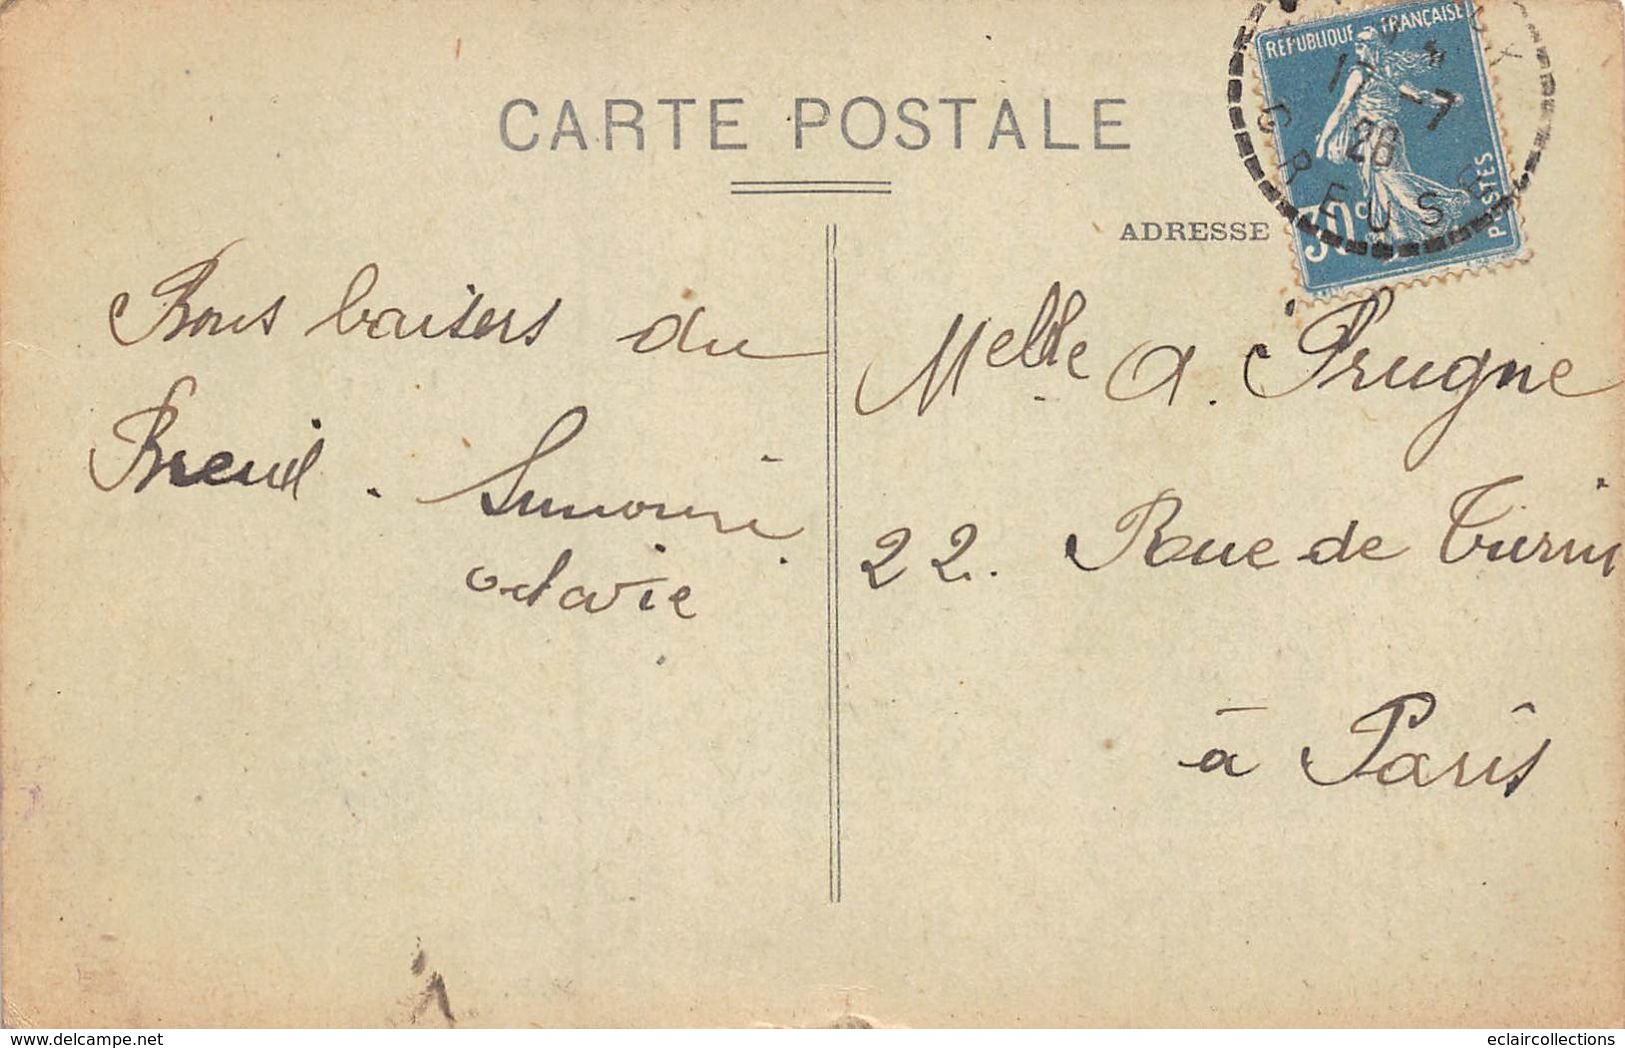 CARTE POSTALE
REPUBLIQUE FRANÇAISE
17 -7
26
CREUSE
30c
POSTES
ADRESSE
Bons baisers du
Breuil.
octavie
Melle A. Prugne
22. Rue de Turin
à Paris
delcampe.net
eclaircollections